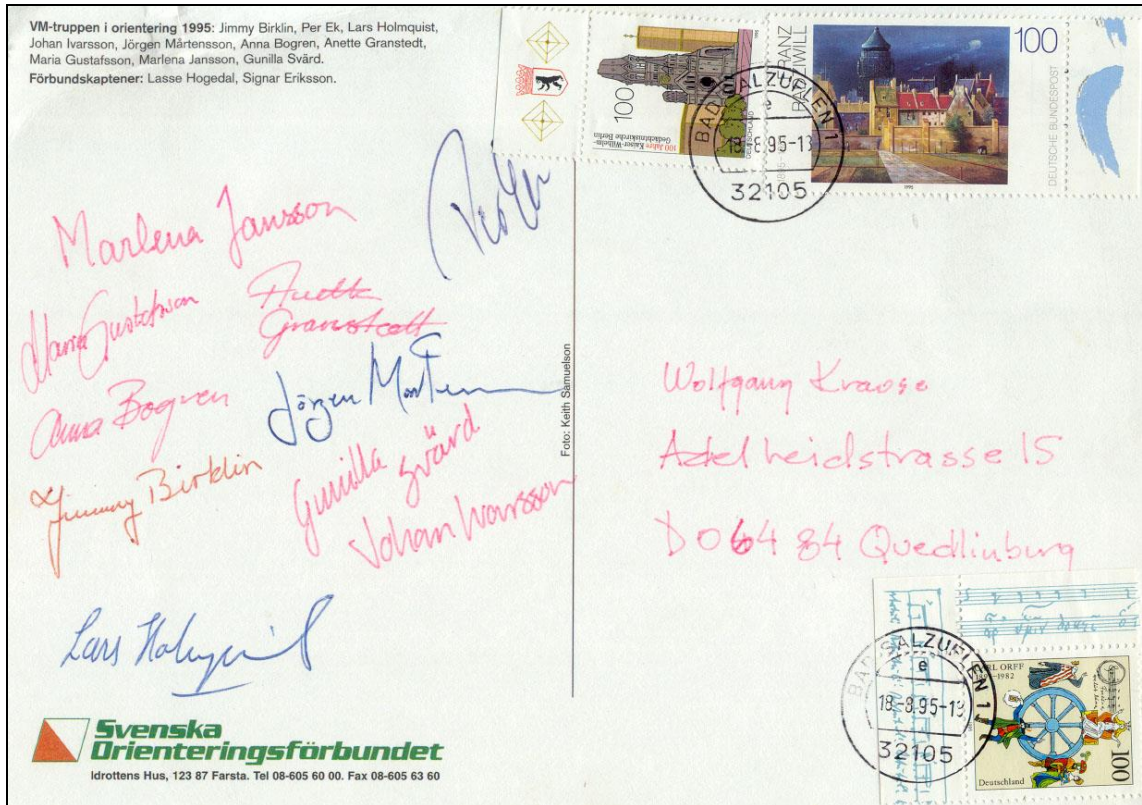 VM-truppen i orientering 1995: Jimmy Birklin, Per Ek, Lars Holmquist,
Johan Ivarsson, Jörgen Mårtensson, Anna Bogren, Anette Granstedt,
Maria Gustafsson, Marlena Jansson, Gunilla Svärd.
Förbundskaptener: Lasse Hogedal, Signar Eriksson.
100
100 Jahre Kaiser-Wilhelm-
Gedächtniskirche Berlin
DEUTSCHLAND
100
DEUTSCHE BUNDESPOST
BAD SALZUFLEN 1
e
18.-8.95-13
32105
Per Ek
Marlena Jansson
Maria Gustafsson
Anette
Granstedt
Anna Bogren
Jörgen
Jimmy Birklin
Gunilla
Svärd
Johan Ivarsson
Lars Holmquist
Foto: Keith Samuelson
Wolfgang Krause
Adelheidstrasse 15
D 06484 Quedlinburg
CARL ORFF
1895-1982
Deutschland
100
BAD SALZUFLEN 1
e
18.-8.95-13
32105
Svenska
Orienteringsförbundet
Idrottens Hus, 123 87 Farsta. Tel 08-605 60 00. Fax 08-605 63 60